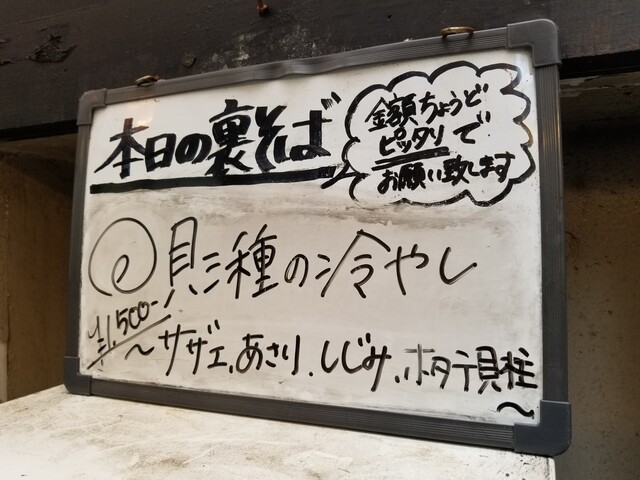 本日の裏そば
金額ちょうど
ピッタリで
お願い致します
貝三種の冷やし
¥1,500-
〜サザエ、あさり、しじみ、ホタテ貝柱〜